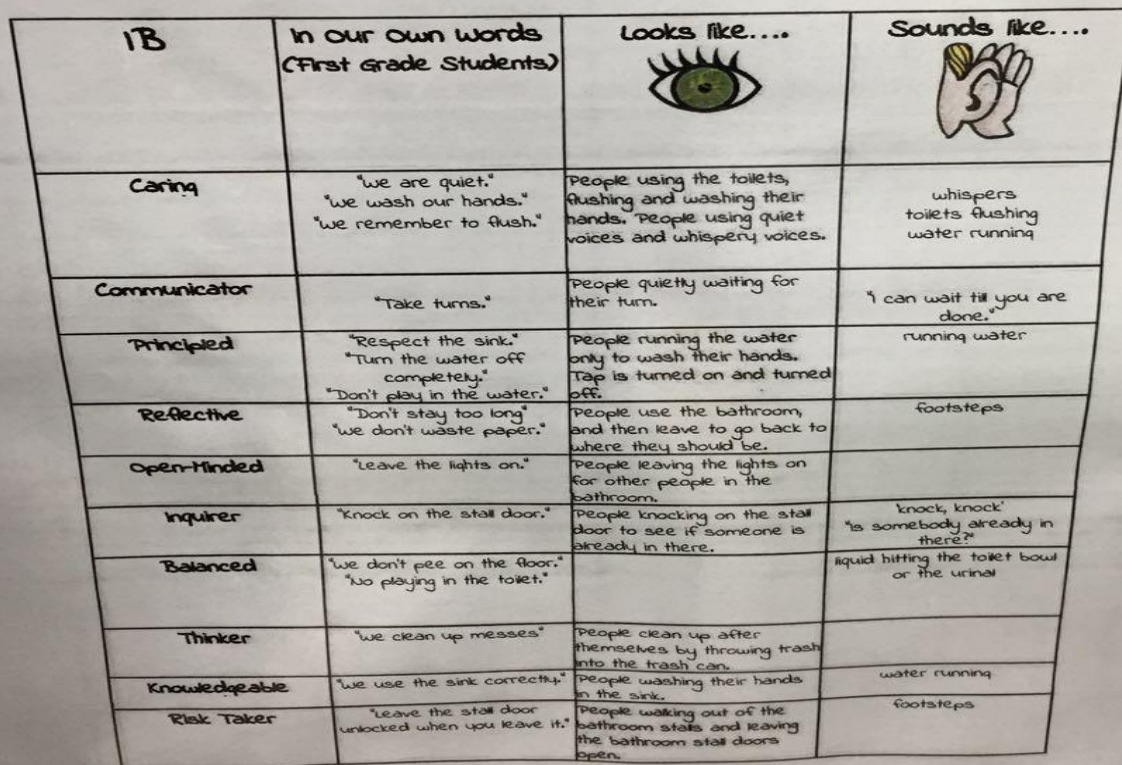 IB
In our own words
(First Grade Students)
Looks like....
Sounds like....
Caring
"We are quiet."
"We wash our hands."
"We remember to flush."
People using the toilets,
flushing and washing their
hands. People using quiet
voices and whispery voices.
whispers
toilets flushing
water running
Communicator
"Take turns."
People quietly waiting for
their turn.
"I can wait till you are
done."
Principled
"Respect the sink."
"Turn the water off
completely."
"Don't play in the water."
People running the water
only to wash their hands.
Tap is turned on and turned
off.
running water
Reflective
"Don't stay too long"
"We don't waste paper."
People use the bathroom,
and then leave to go back to
where they should be.
footsteps
Open-Minded
"Leave the lights on."
People leaving the lights on
for other people in the
bathroom.
Inquirer
"Knock on the stall door."
People knocking on the stall
door to see if someone is
already in there.
'knock, knock'
"Is somebody already in
there?"
Balanced
"We don't pee on the floor."
"No playing in the toilet."
liquid hitting the toilet bowl
or the urinal
Thinker
"We clean up messes"
People clean up after
themselves by throwing trash
into the trash can.
Knowledgeable
"We use the sink correctly."
People washing their hands
in the sink.
water running
Risk Taker
"Leave the stall door
unlocked when you leave it."
People walking out of the
bathroom stalls and leaving
the bathroom stall doors
open.
footsteps